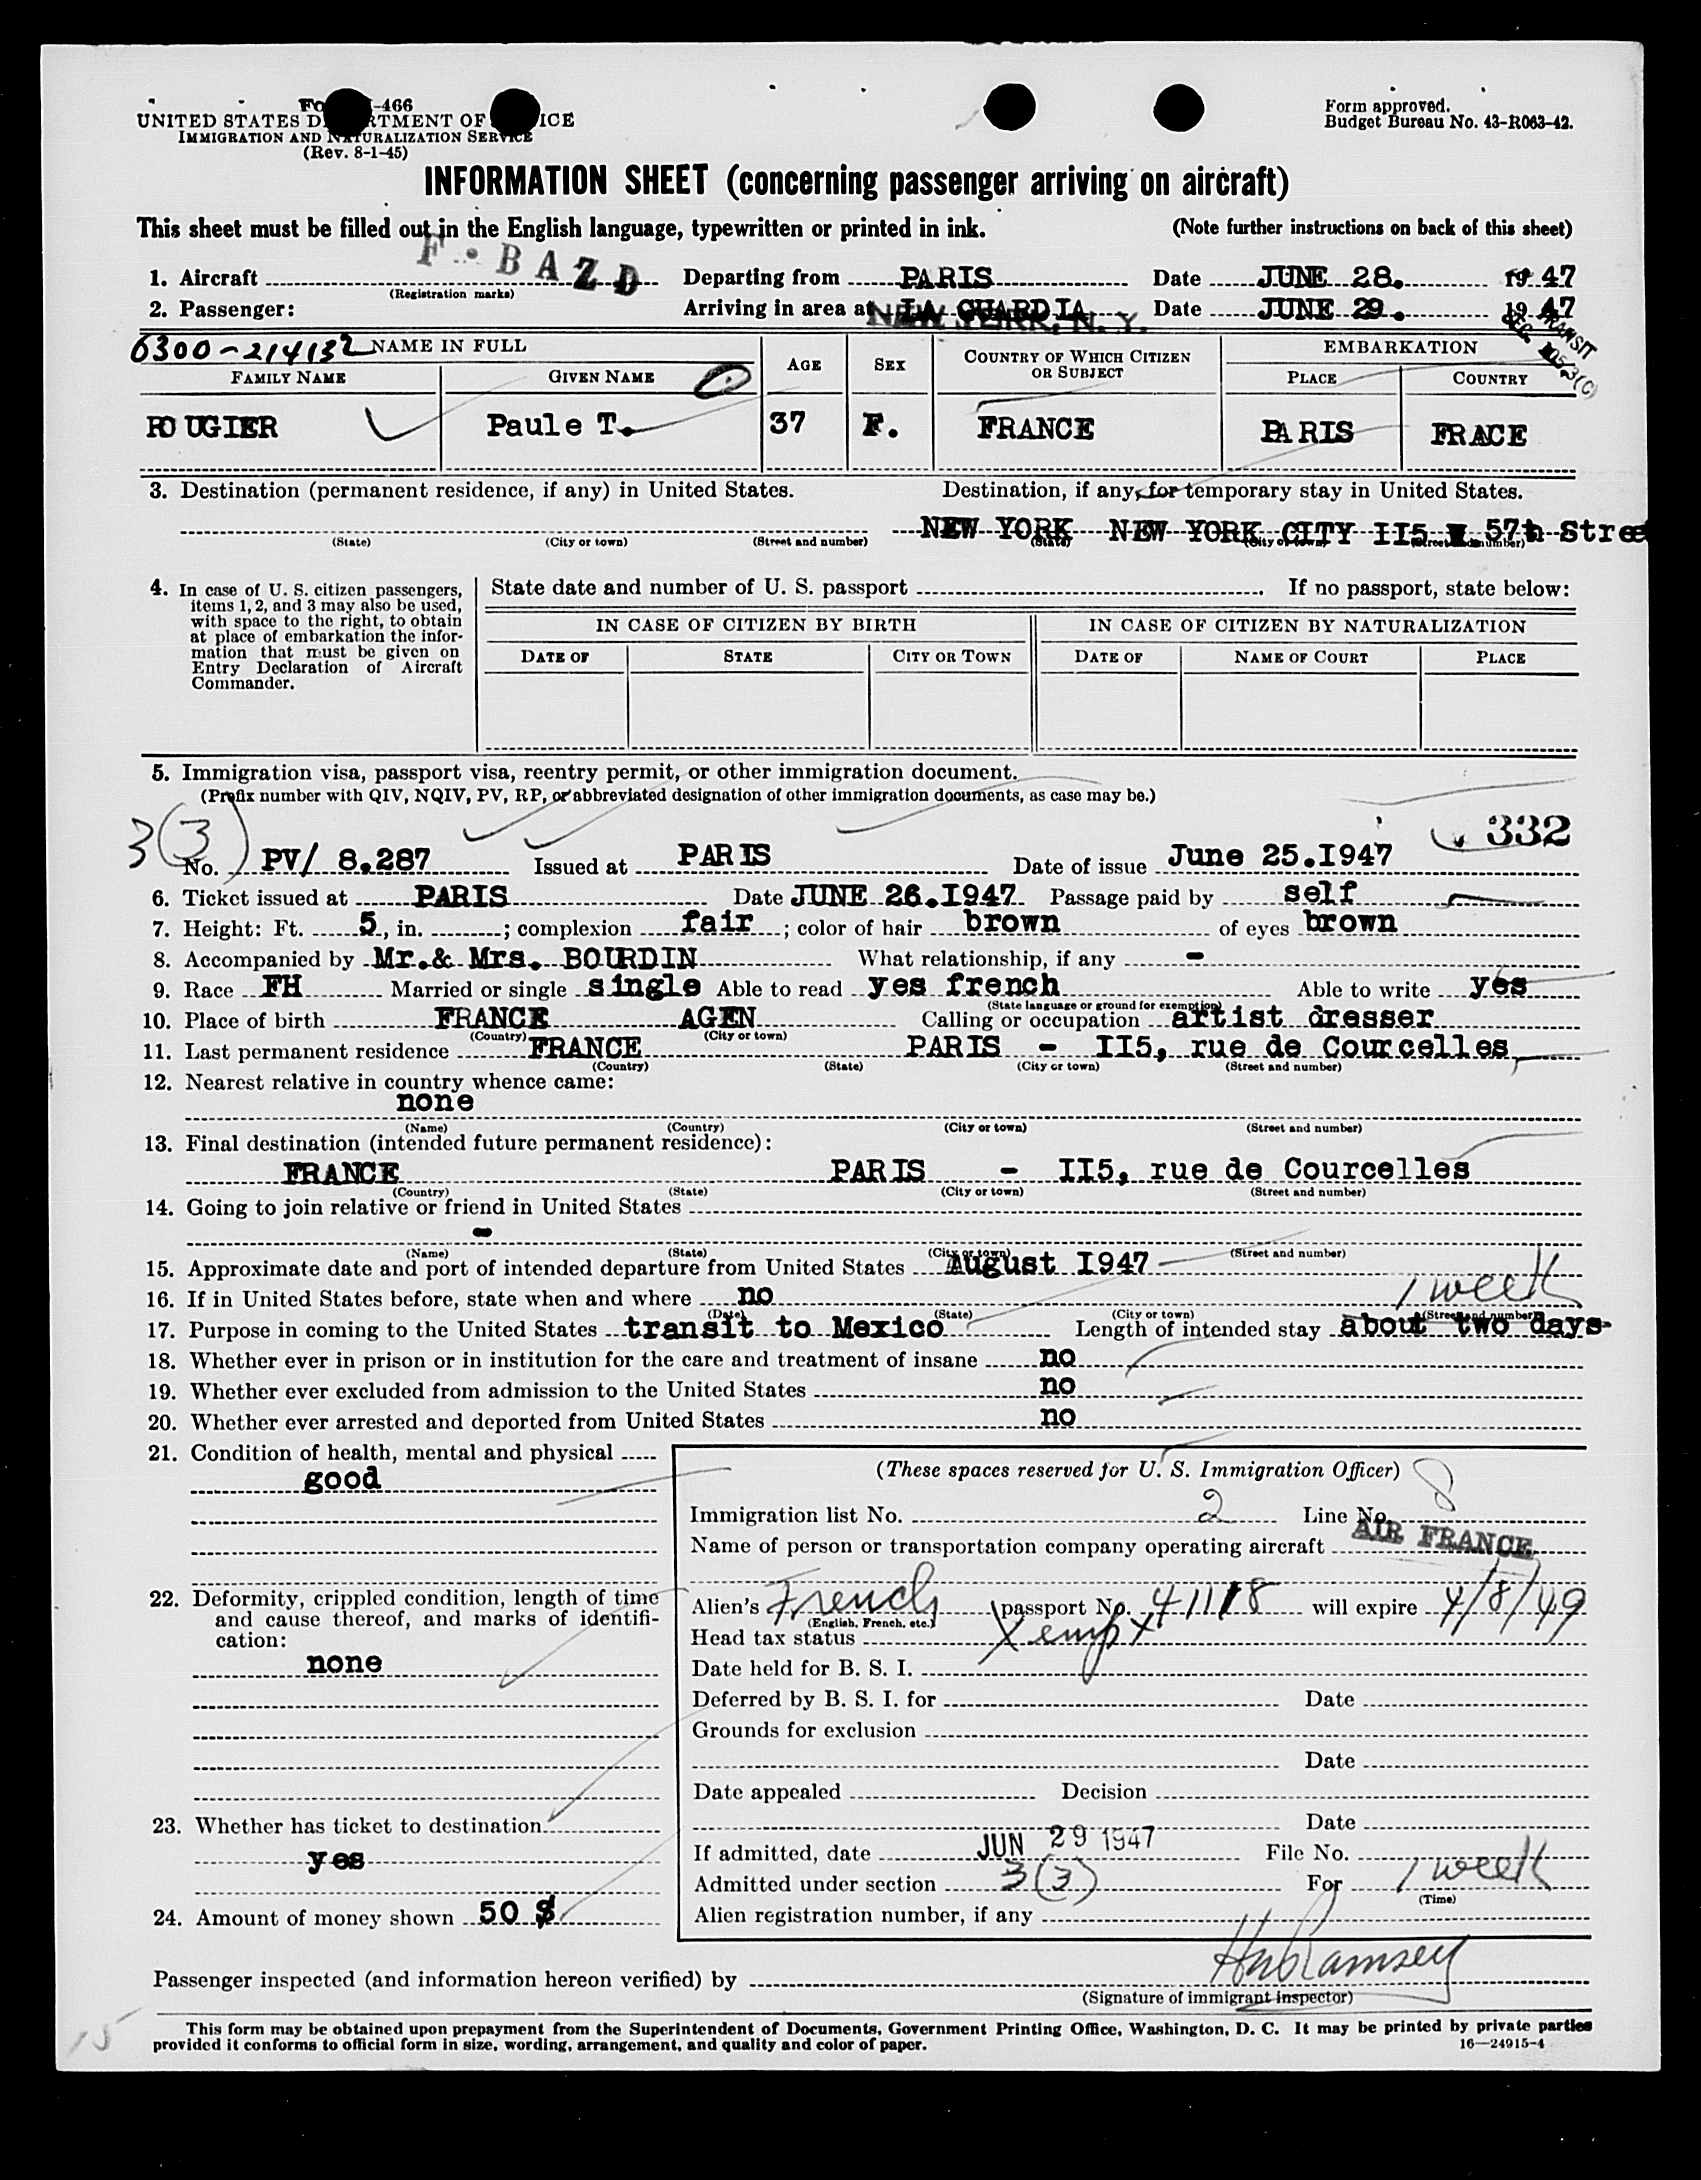 Form I-466
UNITED STATES DEPARTMENT OF JUSTICE
IMMIGRATION AND NATURALIZATION SERVICE
(Rev. 8-1-45)
Form approved.
Budget Bureau No. 43-R063-42.
INFORMATION SHEET (concerning passenger arriving on aircraft)
This sheet must be filled out in the English language, typewritten or printed in ink. (Note further instructions on back of this sheet)
1. Aircraft F·BAZD Departing from PARIS Date JUNE 28. 1947
(Registration marks)
2. Passenger: Arriving in area at LA GUARDIA NEW YORK, N. Y. Date JUNE 29. 1947
TRANSIT
6300-214132 NAME IN FULL AGE SEX COUNTRY OF WHICH CITIZEN OR SUBJECT EMBARKATION
FAMILY NAME GIVEN NAME PLACE COUNTRY
ROUGIER Paule T. 37 F. FRANCE PARIS FRACE
3. Destination (permanent residence, if any) in United States. Destination, if any, for temporary stay in United States.
NEW YORK NEW YORK CITY II5 W 57th Stree
(State) (City or town) (Street and number) (State) (City or town) (Street and number)
4. In case of U. S. citizen passengers, items 1, 2, and 3 may also be used, with space to the right, to obtain at place of embarkation the information that must be given on Entry Declaration of Aircraft Commander.
State date and number of U. S. passport . If no passport, state below:
IN CASE OF CITIZEN BY BIRTH IN CASE OF CITIZEN BY NATURALIZATION
DATE OF STATE CITY OR TOWN DATE OF NAME OF COURT PLACE
5. Immigration visa, passport visa, reentry permit, or other immigration document.
(Prefix number with QIV, NQIV, PV, RP, or abbreviated designation of other immigration documents, as case may be.)
3(3) 332
No. PV/ 8.287 Issued at PARIS Date of issue June 25.I947
6. Ticket issued at PARIS Date JUNE 26.I947 Passage paid by self
7. Height: Ft. 5, in. ; complexion fair ; color of hair brown of eyes brown
8. Accompanied by Mr.& Mrs. BOURDIN What relationship, if any -
9. Race FH Married or single single Able to read yes french Able to write yes
(State language or ground for exemption)
10. Place of birth FRANCE AGEN Calling or occupation artist dresser
(Country) (City or town)
11. Last permanent residence FRANCE PARIS - II5, rue de Courcelles
(Country) (State) (City or town) (Street and number)
12. Nearest relative in country whence came:
none
(Name) (Country) (City or town) (Street and number)
13. Final destination (intended future permanent residence):
FRANCE PARIS - II5, rue de Courcelles
(Country) (State) (City or town) (Street and number)
14. Going to join relative or friend in United States
-
(Name) (State) (City or town) (Street and number)
15. Approximate date and port of intended departure from United States August I947
16. If in United States before, state when and where no 1 week
(Date) (State) (City or town) (Street and number)
17. Purpose in coming to the United States transit to Mexico Length of intended stay about two days-
18. Whether ever in prison or in institution for the care and treatment of insane no
19. Whether ever excluded from admission to the United States no
20. Whether ever arrested and deported from United States no
21. Condition of health, mental and physical
good
(These spaces reserved for U. S. Immigration Officer)
Immigration list No. 2 Line No. 8
Name of person or transportation company operating aircraft AIR FRANCE
22. Deformity, crippled condition, length of time and cause thereof, and marks of identification:
none
Alien's French passport No. 41118 will expire 4/8/49
(English, French, etc.)
Head tax status Xempt
Date held for B. S. I.
Deferred by B. S. I. for Date
Grounds for exclusion
Date
Date appealed Decision
23. Whether has ticket to destination
yes
Date
If admitted, date JUN 29 1947 File No.
Admitted under section 3(3) For 1 week
(Time)
24. Amount of money shown 50 $
Alien registration number, if any
Passenger inspected (and information hereon verified) by
(Signature of immigrant inspector)
15
This form may be obtained upon prepayment from the Superintendent of Documents, Government Printing Office, Washington, D. C. It may be printed by private parties
provided it conforms to official form in size, wording, arrangement, and quality and color of paper. 16—24915-4